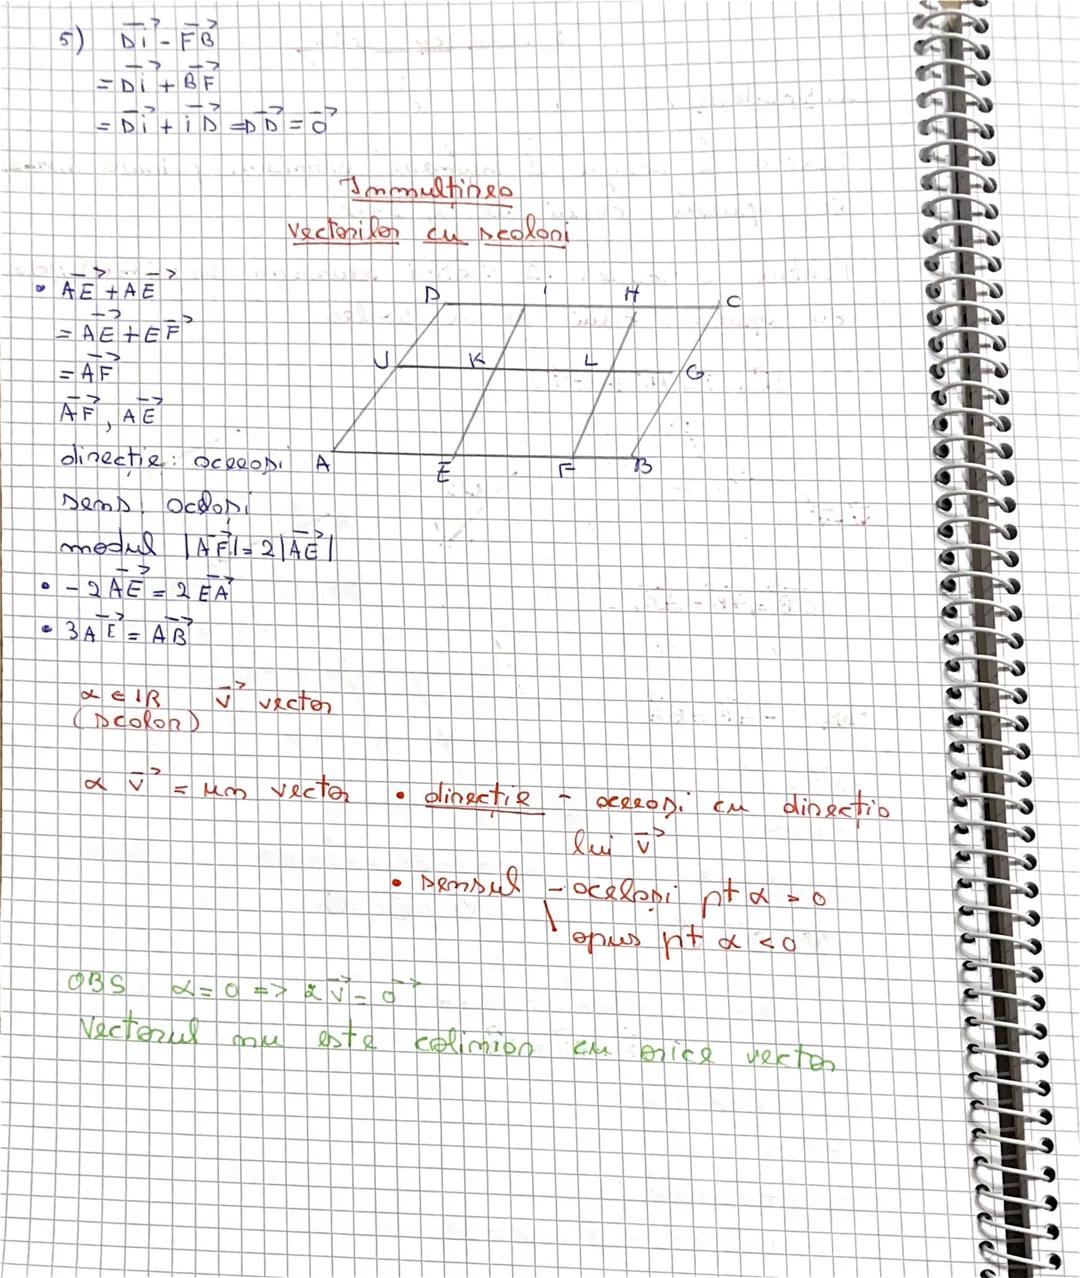 5) DI⃗ - FB⃗
= DI⃗ + BF⃗
= DI⃗ + ID⃗ = DD⃗ = 0⃗
Immultirea
vectorilor cu scalari
• AE⃗ + AE⃗
= AE⃗ + EF⃗
= AF⃗
AF⃗, AE⃗
direcție: aceeași
sens: același
modul |AF⃗| = 2|AE⃗|
• -2AE⃗ = 2EA⃗
• 3AE⃗ = AB⃗
D I H C
J K L G
A E F B
α ∈ IR v⃗ vector
(scalar)
α v⃗ = un vector • direcție - aceeași cu direcția
lui v⃗
• sensul - același pt α > 0
opus pt α < 0
OBS α = 0 => α v⃗ = 0⃗
Vectorul nu este coliniar cu orice vector